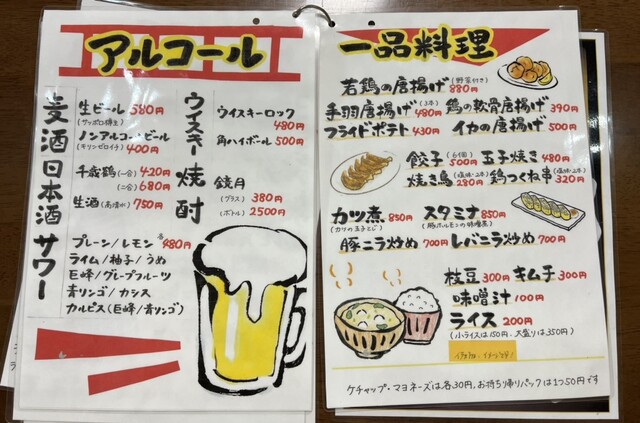 アルコール
麦酒
生ビール 580円
(サッポロ樽生)
ノンアルコールビール
(キリンゼロイチ) 400円
日本酒
千歳鶴 (一合) 420円
(二合) 680円
生酒 750円
サワー
プレーン/レモン 各480円
ライム/柚子/うめ
巨峰/グレープフルーツ
青リンゴ/カシス
カルピス(巨峰/青リンゴ)
ウイスキー
ウイスキーロック
480円
角ハイボール 500円
焼酎
鏡月
(グラス) 380円
(ボトル) 2500円
一品料理
若鶏の唐揚げ (野菜付き) 880円
手羽唐揚げ (3本) 480円
鶏の軟骨唐揚げ 390円
フライドポテト 430円
イカの唐揚げ 500円
餃子 (6個) 500円
玉子焼き 480円
焼き鳥 (塩味・2本) 280円
鶏つくね串 (塩味・2本) 320円
カツ煮 850円
(カツの玉子とじ)
スタミナ 850円
(豚ホルモンの味噌煮)
豚ニラ炒め 700円
レバニラ炒め 700円
枝豆 300円
キムチ 300円
味噌汁 100円
ライス 200円
(小ライスは150円、大盛りは350円)
ケチャップ・マヨネーズは各30円、お持ち帰りパックは1つ50円です